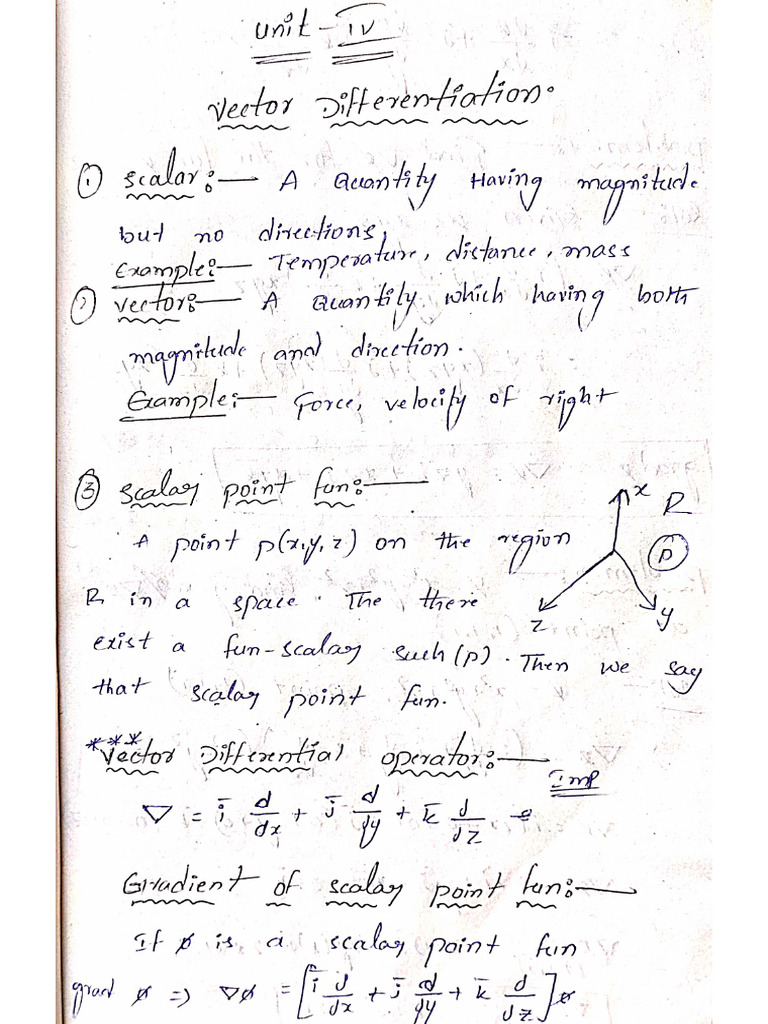 Unit - IV
Vector Differentiation.
① Scalar:— A Quantity Having magnitude
but no directions,
Example:— Temperature, distance, mass
② Vector:— A Quantity which having both
magnitude and direction.
Example:— Force, velocity of right
③ Scalar point fun:—
x R
A point p(x,y,z) on the region
P
R in a space. The there
z y
exist a fun-scalar such (p). Then we say
that scalar point fun.
***
Vector Differential operator:—
Imp
∇ = i̅ d/dx + j̅ d/dy + k̅ d/dz
Gradient of scalar point fun:—
If ø is a scalar point fun
grad ø => ∇ø = [i̅ d/dx + j̅ d/dy + k̅ d/dz]ø